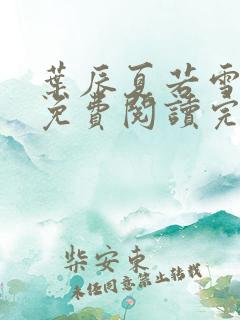 葉辰夏若雪
免費閱讀完
柴安東
未經同意禁止轉載